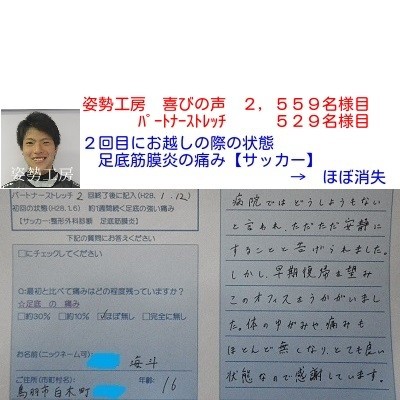 姿勢工房 喜びの声 2,559名様目
パートナーストレッチ 529名様目
2回目にお越しの際の状態
足底筋膜炎の痛み【サッカー】
→ ほぼ消失
姿勢工房
パートナーストレッチ 2回終了後に記入(H28.1.12)
初回の状態(H28.1.6) 約1週間続く足底の強い痛み
【サッカー:整形外科診断 足底筋膜炎】
下記の質問にお答えください
□にチェックしてください
Q:最初と比べて痛みはどの程度残っていますか?
☆足底 の 痛み
□約30% □約10% ☑ほぼ無し □完全に無し
お名前(ニックネーム可): 海斗
ご住所(市町村名): 鳥羽市白木町 年齢: 16
病院ではどうしようもない
と言われ、ただただ安静に
することと告げられました。
しかし、早期復帰を望み
このオフィスをうかがいまし
た。体のゆがみや痛みも
ほとんど無くなり、とても良い
状態なので感謝しています。